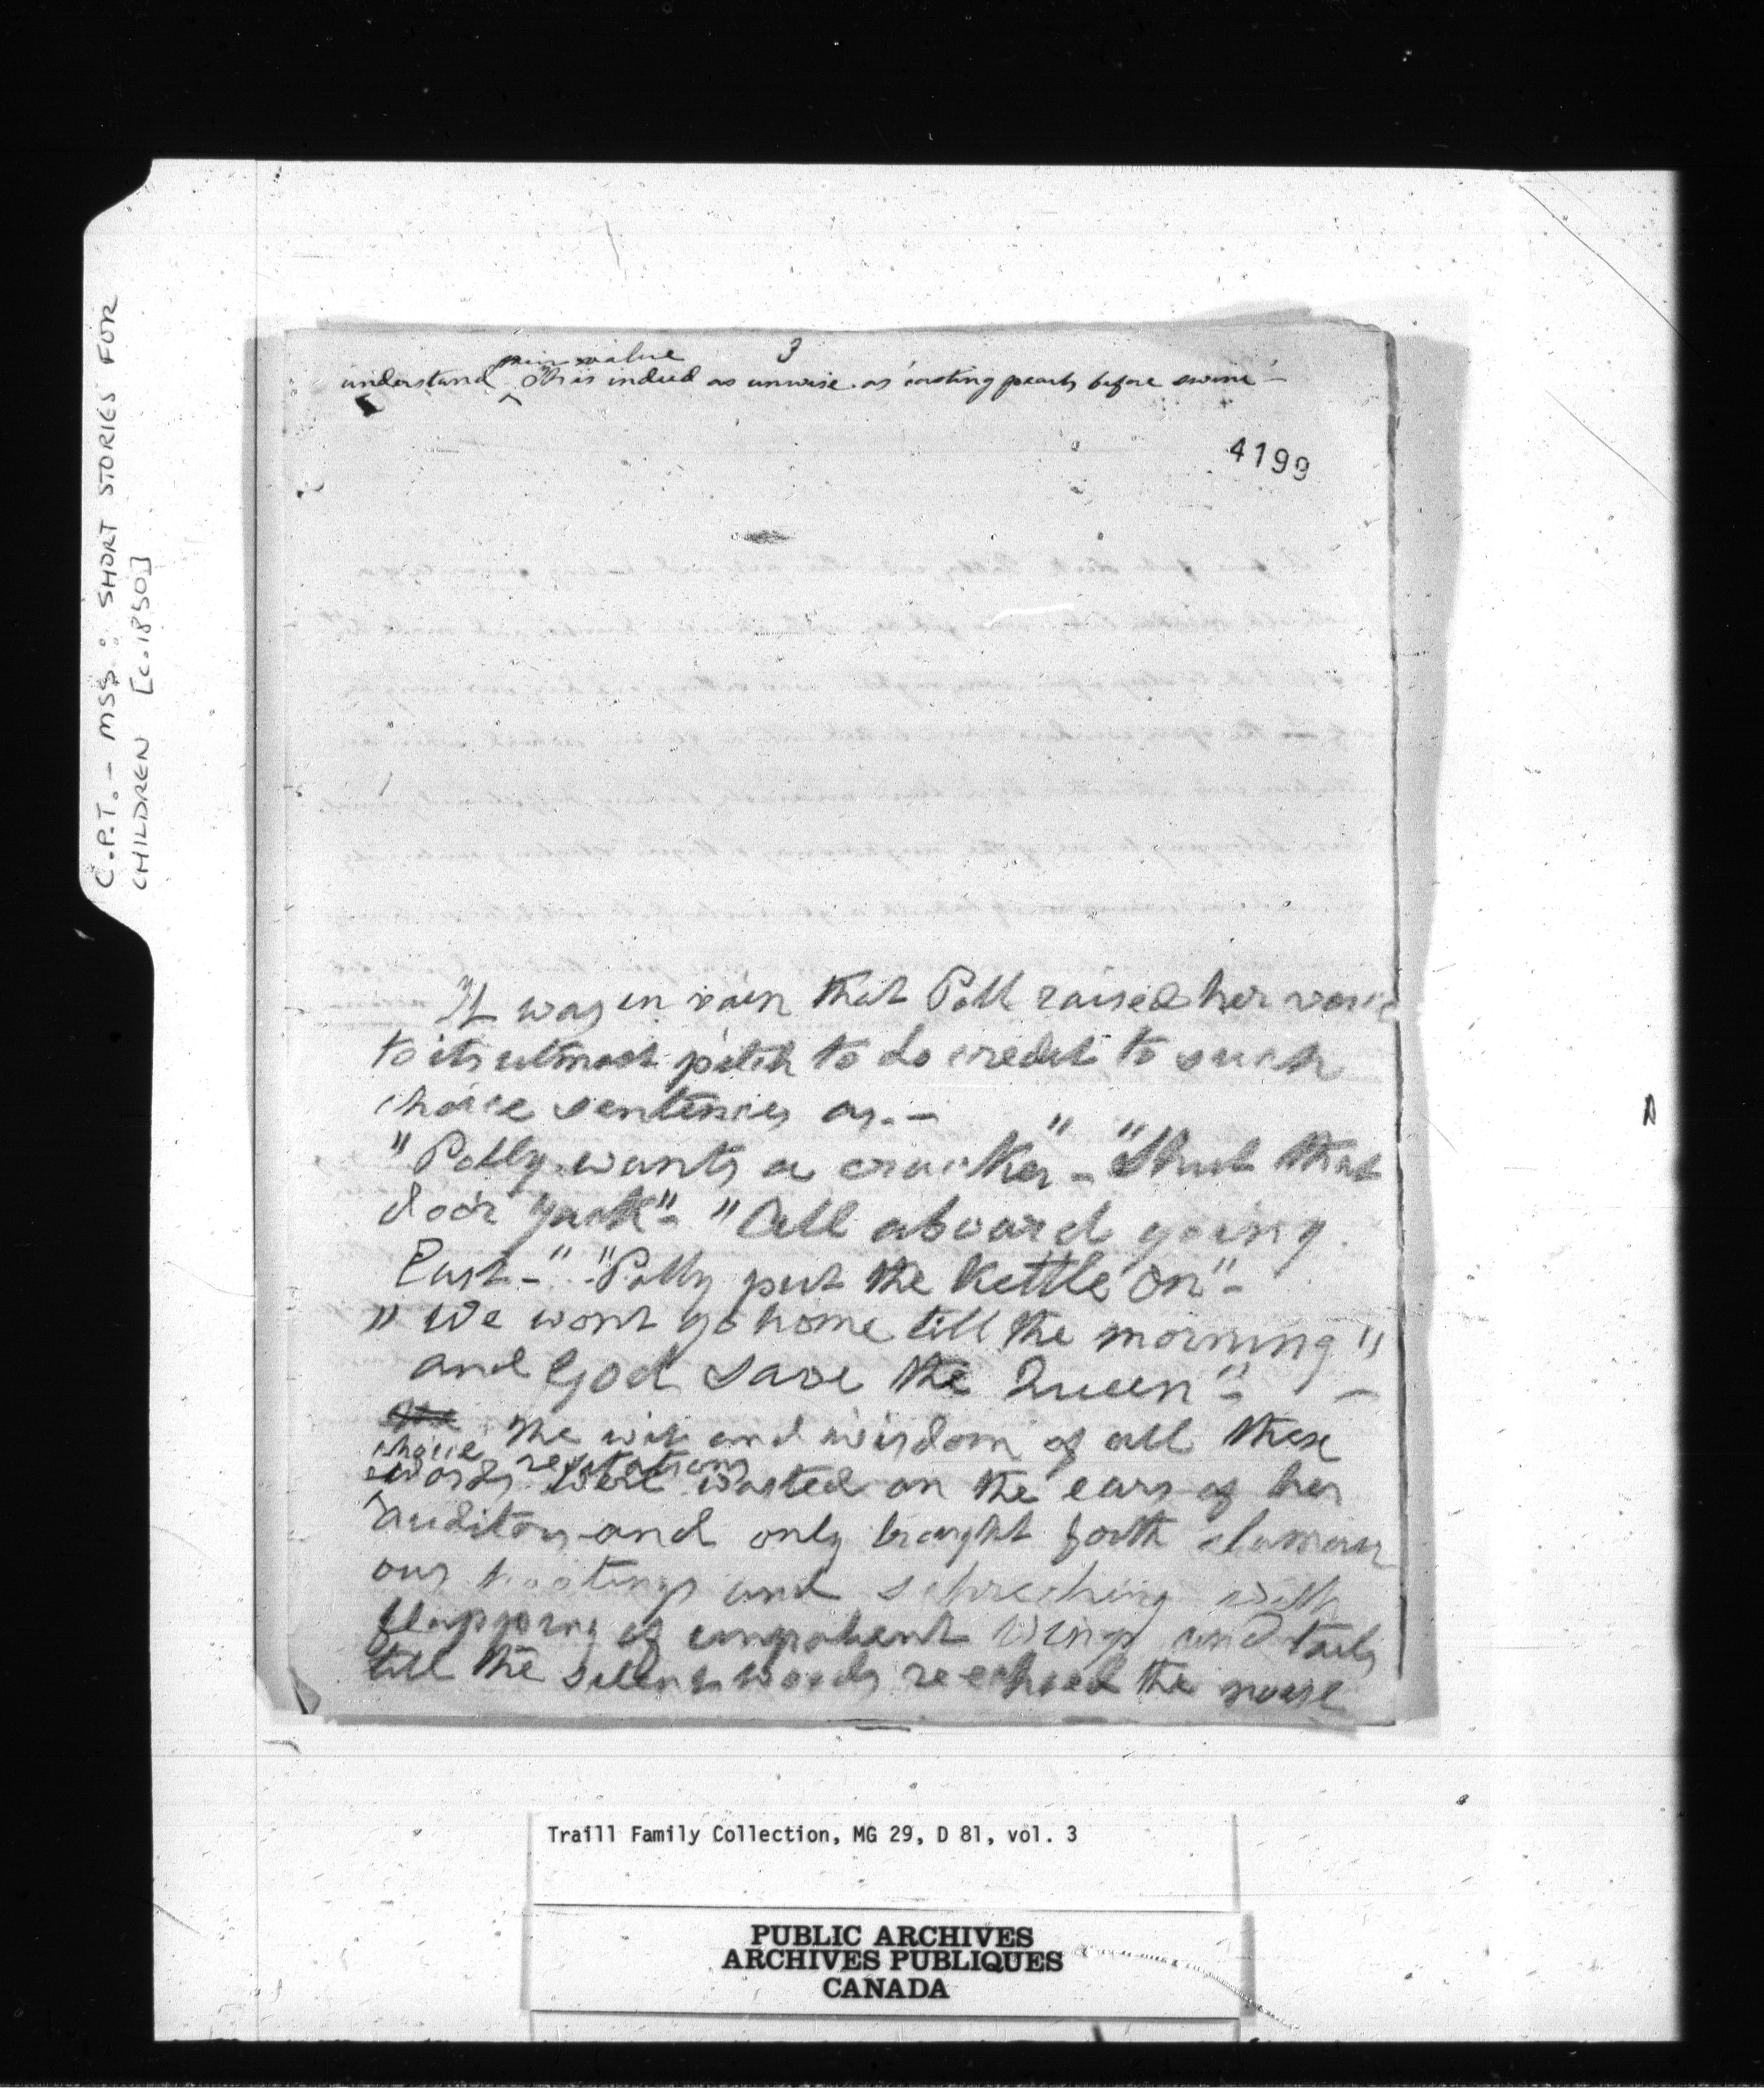 C.P.T. - MSS: SHORT STORIES FOR
CHILDREN [c.1850]
3
value
understand ^ This indeed as unwise as casting pearls before swine -
4199
It was in vain that Poll raised her voice
to its utmost pitch to do credit to such
choice sentences as. -
"Polly wants a cracker" - "Shut that
door Jack" - "All aboard going
East -" "Polly put the Kettle on" -
" We wont go home till the morning "
and God save the Queen" - -
The wit and wisdom of all these
choice recitations
words were wasted on the ears of her
auditors and only brought forth clamour
ous hootings and schreching with
flapping of impatient wings and tails
till the silent woods reechoed the noise
Traill Family Collection, MG 29, D 81, vol. 3
PUBLIC ARCHIVES
ARCHIVES PUBLIQUES
CANADA